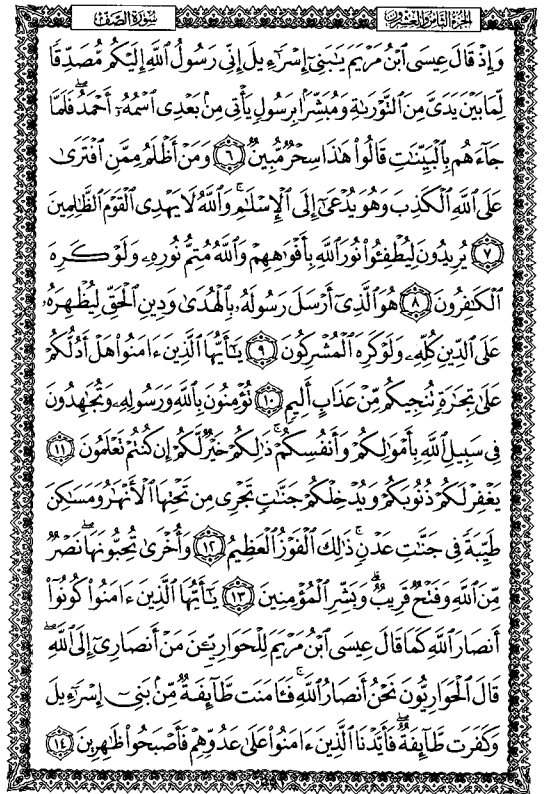 الجزء الثامن والعشرون
سورة الصف
وَإِذْ قَالَ عِيسَى ٱبْنُ مَرْيَمَ يَٰبَنِىٓ إِسْرَٰٓءِيلَ إِنِّى رَسُولُ ٱللَّهِ إِلَيْكُم مُّصَدِّقًا
لِّمَا بَيْنَ يَدَىَّ مِنَ ٱلتَّوْرَىٰةِ وَمُبَشِّرًۢا بِرَسُولٍ يَأْتِى مِنۢ بَعْدِى ٱسْمُهُۥٓ أَحْمَدُ ۖ فَلَمَّا
جَآءَهُم بِٱلْبَيِّنَٰتِ قَالُوا۟ هَٰذَا سِحْرٌ مُّبِينٌ ٦ وَمَنْ أَظْلَمُ مِمَّنِ ٱفْتَرَىٰ
عَلَى ٱللَّهِ ٱلْكَذِبَ وَهُوَ يُدْعَىٰٓ إِلَى ٱلْإِسْلَٰمِ ۚ وَٱللَّهُ لَا يَهْدِى ٱلْقَوْمَ ٱلظَّٰلِمِينَ
٧ يُرِيدُونَ لِيُطْفِـُٔوا۟ نُورَ ٱللَّهِ بِأَفْوَٰهِهِمْ وَٱللَّهُ مُتِمُّ نُورِهِۦ وَلَوْ كَرِهَ
ٱلْكَٰفِرُونَ ٨ هُوَ ٱلَّذِىٓ أَرْسَلَ رَسُولَهُۥ بِٱلْهُدَىٰ وَدِينِ ٱلْحَقِّ لِيُظْهِرَهُۥ
عَلَى ٱلدِّينِ كُلِّهِۦ وَلَوْ كَرِهَ ٱلْمُشْرِكُونَ ٩ يَٰٓأَيُّهَا ٱلَّذِينَ ءَامَنُوا۟ هَلْ أَدُلُّكُمْ
عَلَىٰ تِجَٰرَةٍ تُنجِيكُم مِّنْ عَذَابٍ أَلِيمٍ ١٠ تُؤْمِنُونَ بِٱللَّهِ وَرَسُولِهِۦ وَتُجَٰهِدُونَ
فِى سَبِيلِ ٱللَّهِ بِأَمْوَٰلِكُمْ وَأَنفُسِكُمْ ۚ ذَٰلِكُمْ خَيْرٌ لَّكُمْ إِن كُنتُمْ تَعْلَمُونَ ١١
يَغْفِرْ لَكُمْ ذُنُوبَكُمْ وَيُدْخِلْكُمْ جَنَّٰتٍ تَجْرِى مِن تَحْتِهَا ٱلْأَنْهَٰرُ وَمَسَٰكِنَ
طَيِّبَةً فِى جَنَّٰتِ عَدْنٍ ۚ ذَٰلِكَ ٱلْفَوْزُ ٱلْعَظِيمُ ١٢ وَأُخْرَىٰ تُحِبُّونَهَا ۖ نَصْرٌ
مِّنَ ٱللَّهِ وَفَتْحٌ قَرِيبٌ ۗ وَبَشِّرِ ٱلْمُؤْمِنِينَ ١٣ يَٰٓأَيُّهَا ٱلَّذِينَ ءَامَنُوا۟ كُونُوٓا۟
أَنصَارَ ٱللَّهِ كَمَا قَالَ عِيسَى ٱبْنُ مَرْيَمَ لِلْحَوَارِيِّـۧنَ مَنْ أَنصَارِىٓ إِلَى ٱللَّهِ ۖ
قَالَ ٱلْحَوَارِيُّونَ نَحْنُ أَنصَارُ ٱللَّهِ ۖ فَـَٔامَنَت طَّآئِفَةٌ مِّنۢ بَنِىٓ إِسْرَٰٓءِيلَ
وَكَفَرَت طَّآئِفَةٌ ۖ فَأَيَّدْنَا ٱلَّذِينَ ءَامَنُوا۟ عَلَىٰ عَدُوِّهِمْ فَأَصْبَحُوا۟ ظَٰهِرِينَ ١٤